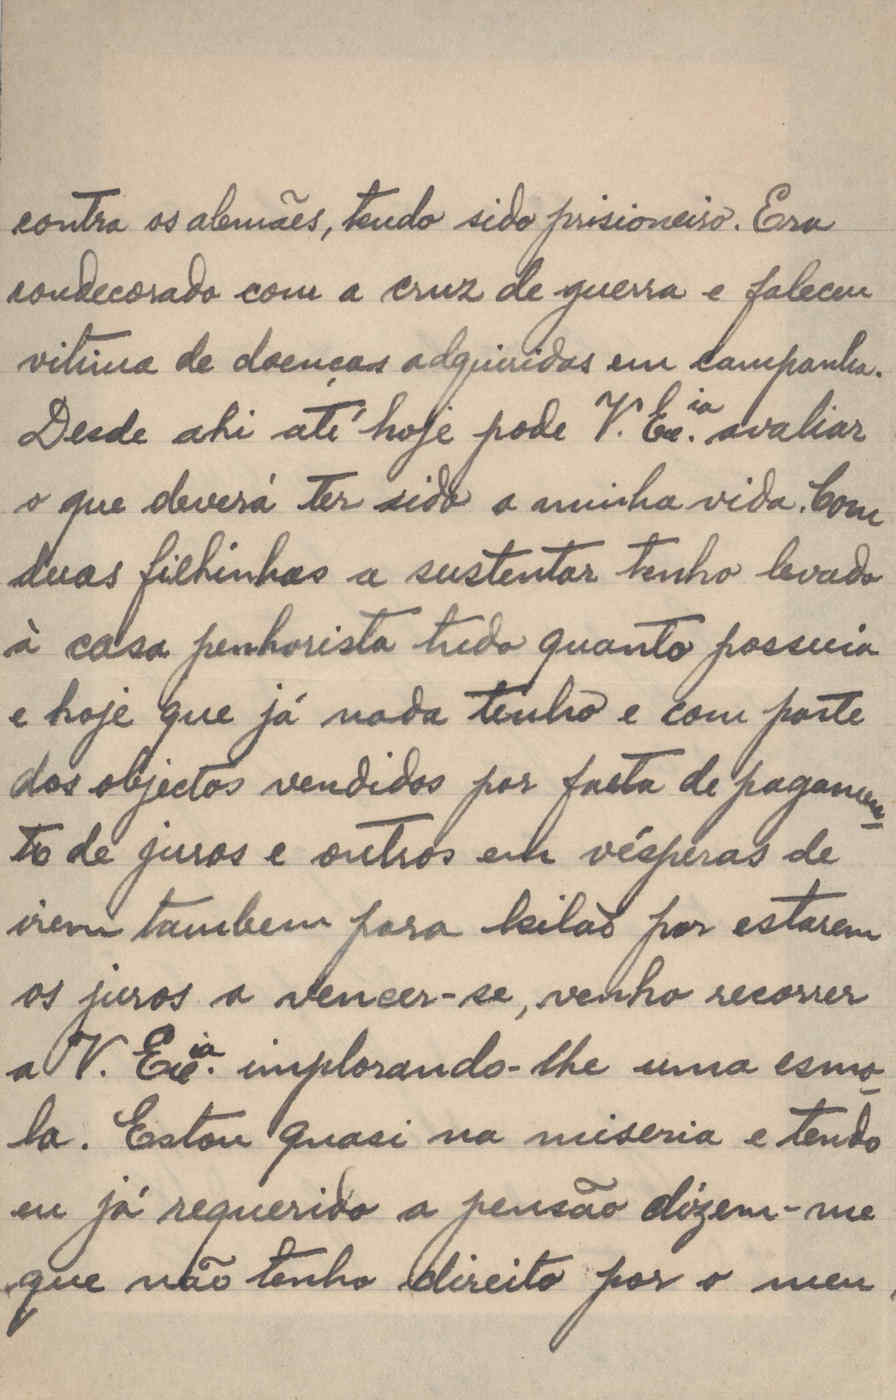 contra os alemães, tendo sido prisioneiro. Era
condecorado com a cruz de guerra e faleceu
vitima de doenças adquiridas em campanha.
Desde ahi até hoje pode V. Ex.ia avaliar
o que deverá ter sido a minha vida. Com
duas filhinhas a sustentar tenho levado
à casa penhorista tudo quanto possuia
e hoje que já nada tenho e com parte
dos objectos vendidos por falta de pagamen-
to de juros e outros em vésperas de
irem tambem para leilão por estarem
os juros a vencer-se, venho recorrer
a V. Ex.ia implorando-lhe uma esmo-
la. Estou quasi na miseria e tendo
eu já requerido a pensão dizem-me
que não tenho direito por o meu